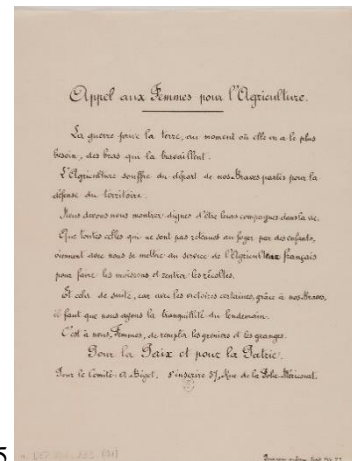 Appel aux Femmes pour l'Agriculture.
La guerre prive la terre, au moment où elle en a le plus
besoin, des bras qui la travaillent.
L'Agriculture souffre du départ de nos Braves partis pour la
défense du territoire.
Nous devons nous montrer dignes d'être leurs compagnes dans la vie.
Que toutes celles qui ne sont pas retenues au foyer par des enfants,
viennent avec nous se mettre au service de l'Agriculteur français
pour faire les moissons et rentrer les récoltes.
Et cela de suite, car avec les victoires certaines, grâce à nos Braves,
il faut que nous ayons la tranquillité du lendemain.
C'est à nous, Femmes, de remplir les greniers et les granges.
Pour la Paix et pour la Patrie.
Pour le Comité: Bizet. S'inscrire 57, Rue de la Folie-Méricourt.
5